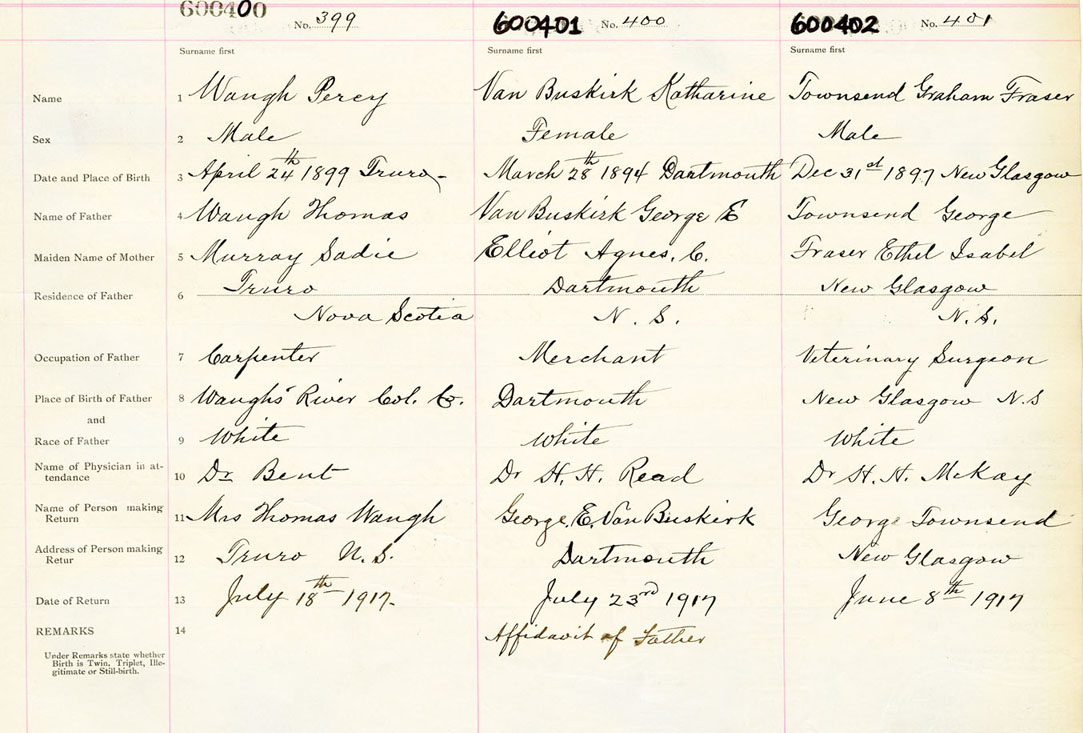 600400 No. 399 600401 No. 400 600402 No. 401
Surname first Surname first Surname first
Name 1 Waugh Percy Van Buskirk Katharine Townsend Graham Fraser
Sex 2 Male Female Male
Date and Place of Birth 3 April 24th 1899 Truro March 28th 1894 Dartmouth Dec 31st 1897 New Glasgow
Name of Father 4 Waugh Thomas Van Buskirk George E Townsend George
Maiden Name of Mother 5 Murray Sadie Elliot Agnes. C. Fraser Ethel Isabel
Residence of Father 6 Truro Dartmouth New Glasgow
Nova Scotia N. S. N.S.
Occupation of Father 7 Carpenter Merchant Veterinary Surgeon
Place of Birth of Father 8 Waughs' River Col. Co. Dartmouth New Glasgow N.S
and
Race of Father 9 White White White
Name of Physician in at-
tendance 10 Dr Bent Dr H. H. Read Dr H. H. McKay
Name of Person making
Return 11 Mrs Thomas Waugh George. E. Van Buskirk George Townsend
Address of Person making
Retur 12 Truro N.S. Dartmouth New Glasgow
Date of Return 13 July 18th 1917. July 23rd 1917 June 8th 1917
REMARKS 14 Affidavit of Father
Under Remarks state whether
Birth is Twin, Triplet, Ille-
gitimate or Still-birth.